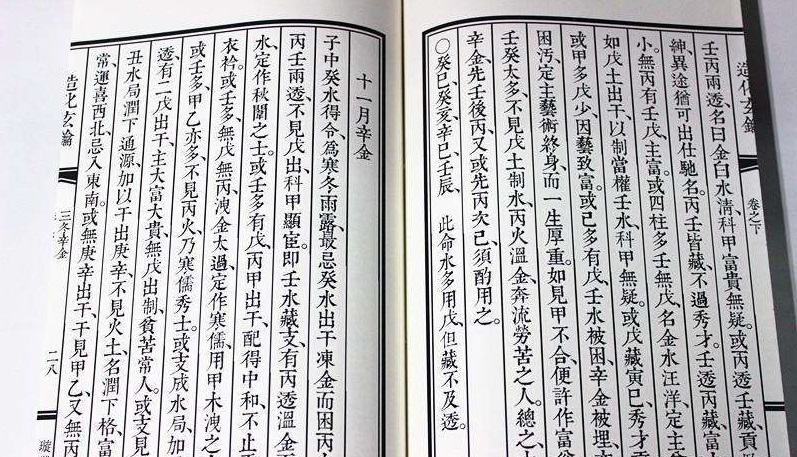 造化玄鑰
卷之下
壬丙兩透、名曰金白水清、科甲富貴無疑。或丙透壬藏、貢
紳、異途猶可出仕馳名。丙壬皆藏、不過秀才。壬透丙藏、富
小。無丙有壬戊、主富。或四柱多壬無戊、名金水汪洋、定主
如戊土出干、以制當權壬水、科甲無疑。或戊藏寅巳、秀才
或甲多戊少、因藝致富。或己多有戊、壬水被困、辛金被埋、
困污、定主藝術終身、而一生厚重。如見甲不合、便許作富
壬癸太多、不見戊土制水、丙火溫金、奔流勞苦之人。總之、
辛金先壬後丙、又或先丙次己、須酌用之。
○癸巳、癸亥、辛巳、壬辰、此命水多用戊、但藏不及透。
十一月辛金
子中癸水得令、為寒冬雨露、最忌癸水出干凍金、而困丙
丙壬兩透、不見戊出、科甲顯宦。即壬水藏支、有丙透溫金
水、定作秋闈之士。或壬多有戊、丙甲出干、配得中和、不止
衣衿。或壬多、無戊無丙、洩金太過、定作寒儒、用甲木洩之
或壬多、甲乙亦多、不見丙火、乃寒儒秀士。或支成水局、加
透、有二戊出干、主大富大貴、無戊出制、貧苦常人。或支見
丑水局、潤下通源、加以干出庚辛、不見火土、名潤下格、富
常、運喜西北、忌入東南。或無庚辛出干、干見甲乙、又無丙
造化玄鑰
三冬辛金
二八